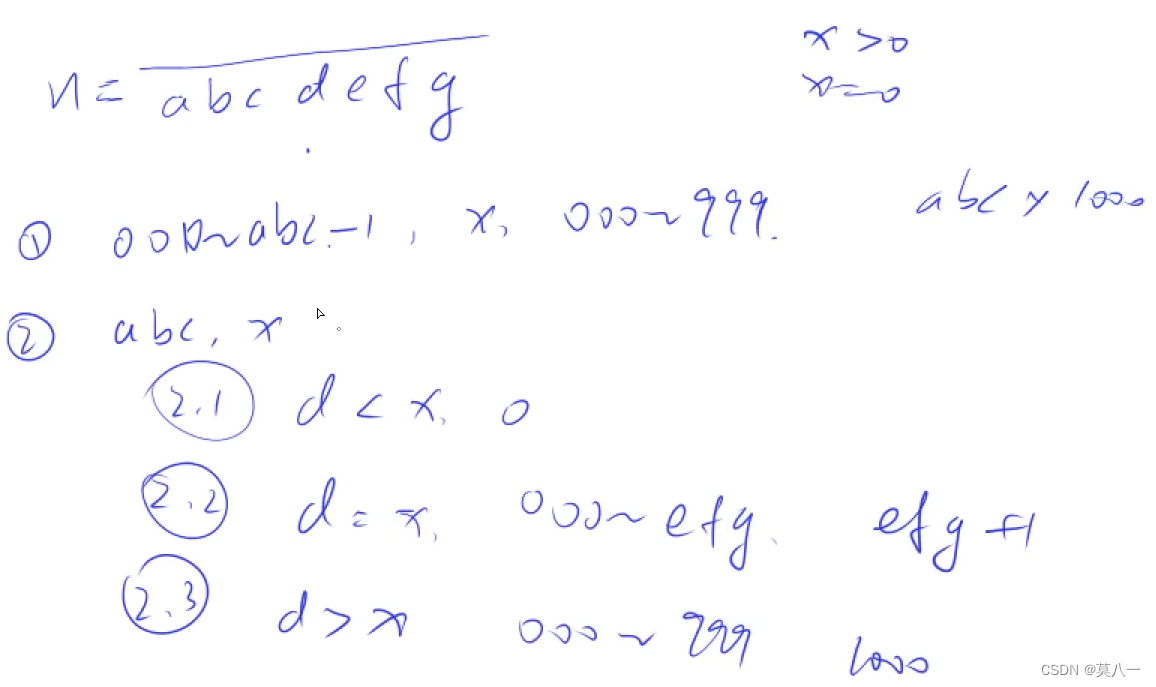 x > 0
n = abcdefg
x = 0
① 000~abc-1, x, 000~999. abc × 1000
② abc, x
2.1 d < x, 0
2.2 d = x, 000~efg. efg+1
2.3 d > x 000~999 1000
CSDN @莫八一